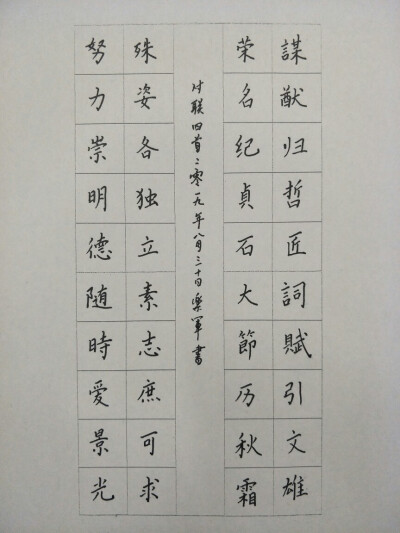 謀猷归哲匠詞賦引文雄
荣名纪貞石大節历秋霜
对联四首二零一九年八月三十日樂軍書
殊姿各独立素志庶可求
努力崇明德随時爱景光